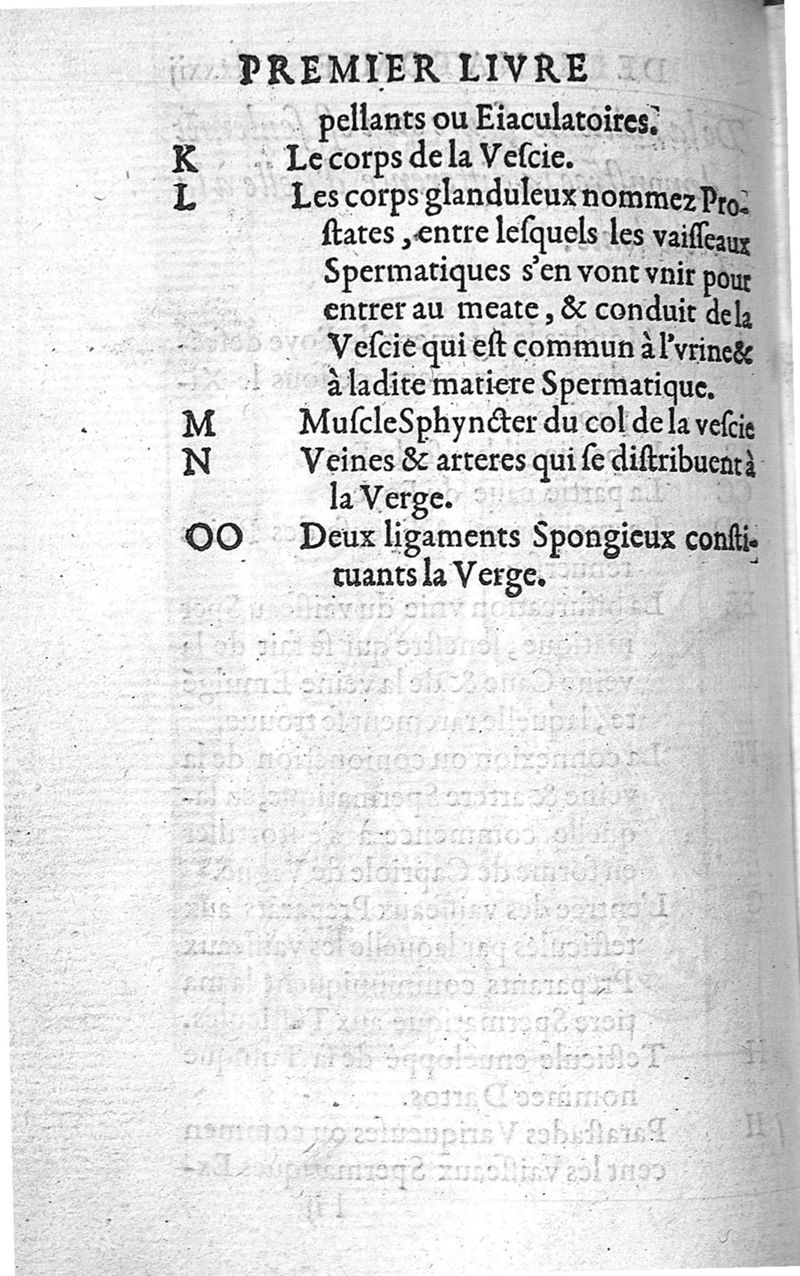 PREMIER LIVRE
pellants ou Eiaculatoires.
K Le corps de la Veſcie.
L Les corps glanduleux nommez Pro-
ſtates, entre leſquels les vaiſſeaux
Spermatiques s'en vont vnir pour
entrer au meate, & conduit de la
Veſcie qui eſt commun à l'vrine &
à ladite matiere Spermatique.
M Muſcle Sphyncter du col de la veſcie
N Veines & arteres qui ſe diſtribuent à
la Verge.
OO Deux ligaments Spongieux conſti-
tuants la Verge.